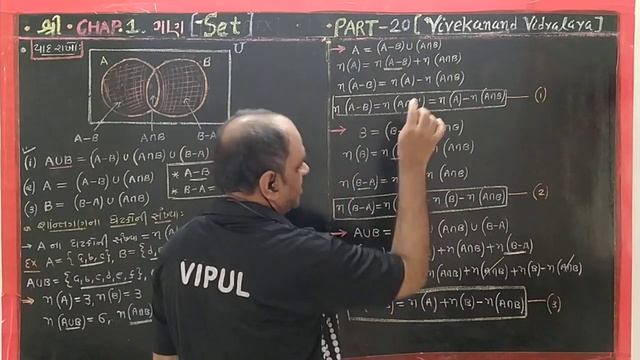 શ્રી CHAP. 1. ગણ [Set]
PART-20 [Vivekanand Vidyalaya]
યાદ રાખો:
U
A
B
A-B
A∩B
B-A
(1) A∪B = (A-B) ∪ (A∩B) ∪ (B-A)
(2) A = (A-B) ∪ (A∩B)
(3) B = (B-A) ∪ (A∩B)
* A-B =
* B-A =
* સાન્તગણના ઘટકોની સંખ્યા:
→ A ના ઘટકોની સંખ્યા = n(A)
EX A = {a,b,c}, B = {d,
A∪B = {a,b,c,d,e,f}
→ n(A) = 3, n(B) = 3
n(A∪B) = 6, n(A∩B)
→ A = (A-B) ∪ (A∩B)
n(A) = n(A-B) + n(A∩B)
n(A-B) = n(A) - n(A∩B)
n(A-B) = n(A∩ = n(A) - n(A∩B) (1)
→ B = (B- ∪ (A∩B)
n(B) = n( (A∩B)
n(B-A) = n( n(A∩B)
n(B-A) = n( n(B) - n(A∩B) (2)
→ A∪B = (A∩B) ∪ (B-A)
n(A∩B) + n(B-A)
n(A∩B) + n(B) - n(A∩B)
= n(A) + n(B) - n(A∩B) (3)
VIPUL